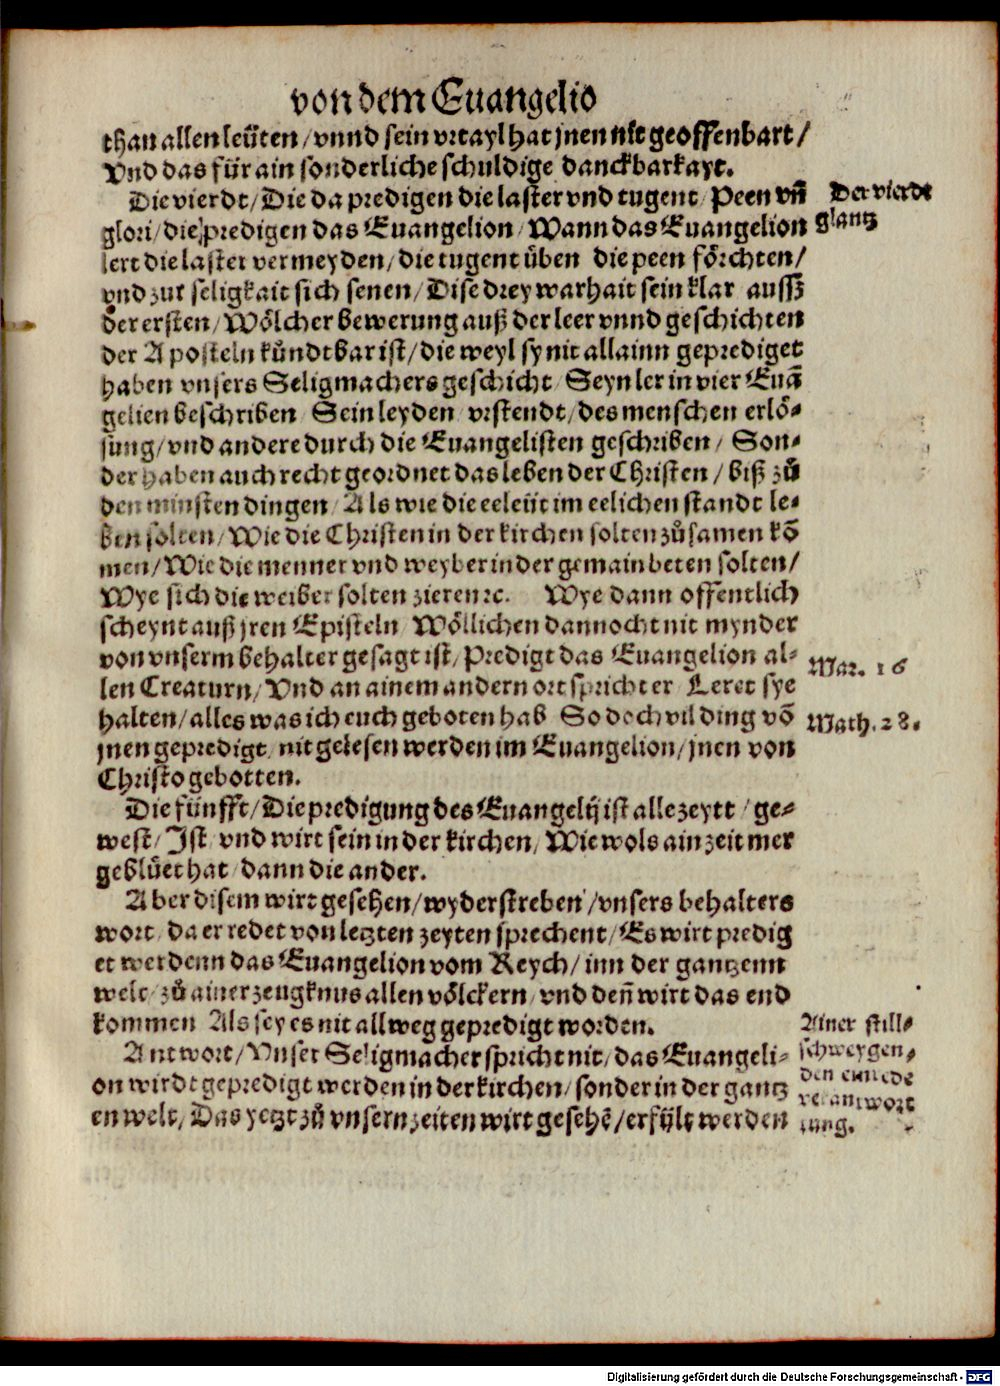 von dem Euangelio
than allen leüten / vnnd sein vrtayl hat jnen nit geoffenbart /
Vnd das für ain sonderliche schuldige danckbarkayt.
Die vierdt / Die da predigen die laster vnd tugent / Peen vñ
Der vierdt
glori / die predigen das Euangelion / Wann das Euangelion
glantz
lert die laster vermeyden / die tugent üben die peen förchten /
vnd zur seligkait sich senen / Dise drey warhait sein klar aussz
der ersten / Wölcher bewerung auß der leer vnnd geschichten
der Aposteln kündtbar ist / die weyl sy nit allainn geprediget
haben vnsers Seligmachers geschicht / Seyn ler in vier Euã
gelien beschriben Sein leyden vrstendt / des menschen erlö⸗
sung / vnd andere durch die Euangelisten geschriben / Son⸗
der haben auch recht geordnet das leben der Christen / biß zů
den minsten dingen / Als wie die eeleüt im eelichen standt le⸗
ben solten / Wie die Christen in der kirchen solten zůsamen kõ
men / Wie die menner vnd weyber in der gemain beten solten /
Wye sich die weiber solten zieren ꝛc. Wye dann offentlich
scheynt auß jren Episteln Wöllichen dannocht nit mynder
von vnserm behalter gesagt ist / Predigt das Euangelion al⸗
Mar. 16
len Creaturn / Vnd an ainem andern ort spricht er Leret sye
halten / alles was ich euch geboten hab So doch vil ding võ
Math. 28.
jnen gepredigt / nit gelesen werden im Euangelion / jnen von
Christo gebotten.
Die fünfft / Die predigung des Euangelij ist alle zeytt / ge⸗
west / Ist vnd wirt sein in der kirchen / Wie wols ain zeit mer
geblüet hat / dann die ander.
Aber disem wirt gesehen / wyderstreben / vnsers behalters
wort / da er redet von letzten zeyten sprechent / Es wirt predig
et werdenn das Euangelion vom Reych / inn der gantzenn
welt / zů ainer zeugknus allen völckern / vnd deñ wirt das end
kommen Als sey es nit allweg gepredigt worden.
Ainer still⸗
Antwort / Vnser Seligmacher spricht nit / das Euangeli⸗
schweygen⸗
on wirdt gepredigt werden in der kirchen / sonder in der gantz
den einrede
en welt / Das yetzt zů vnsern zeiten wirt gesehẽ / erfült werden
verantwort
tung.
Digitalisierung gefördert durch die Deutsche Forschungsgemeinschaft - DFG